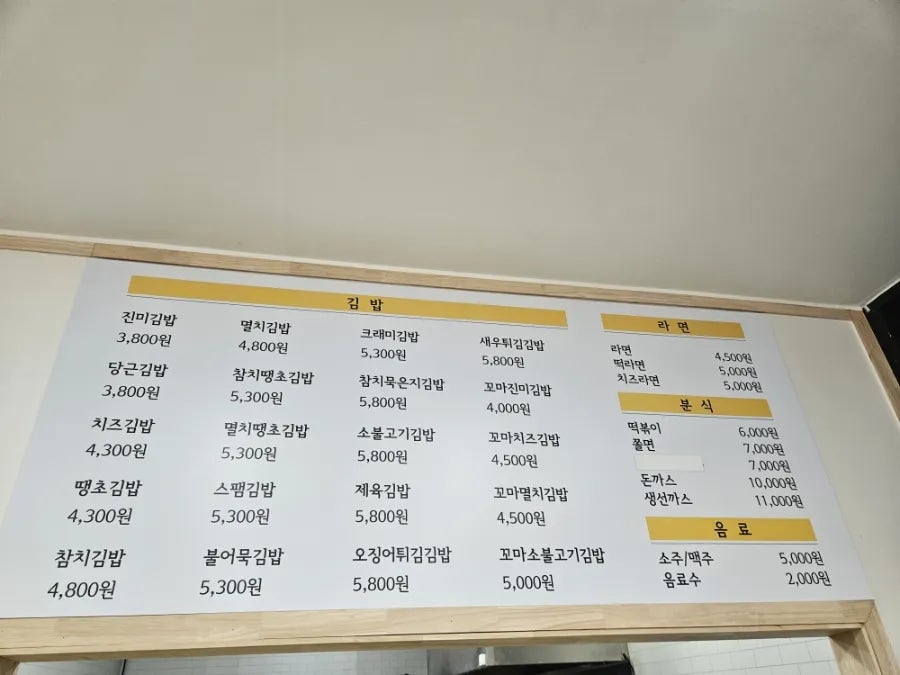 김 밥
진미김밥
3,800원
당근김밥
3,800원
치즈김밥
4,300원
땡초김밥
4,300원
참치김밥
4,800원
멸치김밥
4,800원
참치땡초김밥
5,300원
멸치땡초김밥
5,300원
스팸김밥
5,300원
불어묵김밥
5,300원
크래미김밥
5,300원
참치묵은지김밥
5,800원
소불고기김밥
5,800원
제육김밥
5,800원
오징어튀김김밥
5,800원
새우튀김김밥
5,800원
꼬마진미김밥
4,000원
꼬마치즈김밥
4,500원
꼬마멸치김밥
4,500원
꼬마소불고기김밥
5,000원
라 면
라면 4,500원
떡라면 5,000원
치즈라면 5,000원
분 식
떡볶이 6,000원
쫄면 7,000원
7,000원
돈까스 10,000원
생선까스 11,000원
음 료
소주/맥주 5,000원
음료수 2,000원